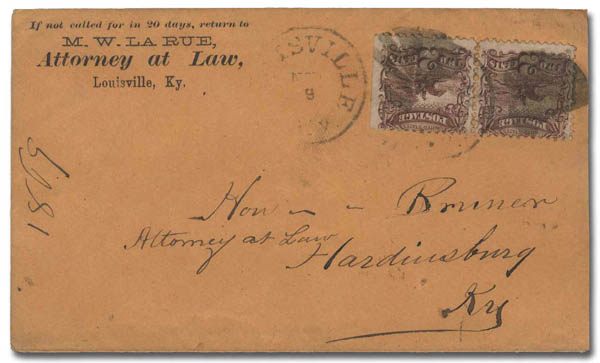 If not called for in 20 days, return to
M. W. LA RUE,
Attorney at Law,
Louisville, Ky.
ISVILLE
POSTAGE
POSTAGE
1869
Hon — — Bruner
Attorney at Law
Hardinsburg
Ky